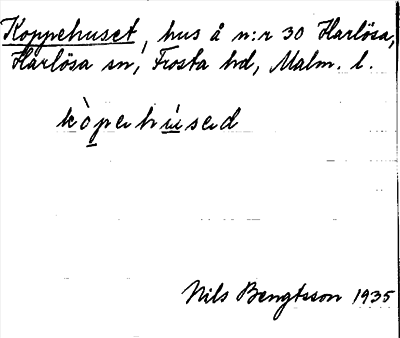 Koppehuset, hus å n:r 30 Harlösa,
Harlösa sn, Frosta hd, Malm. l.
kòpehúsed
Nils Bengtsson 1935